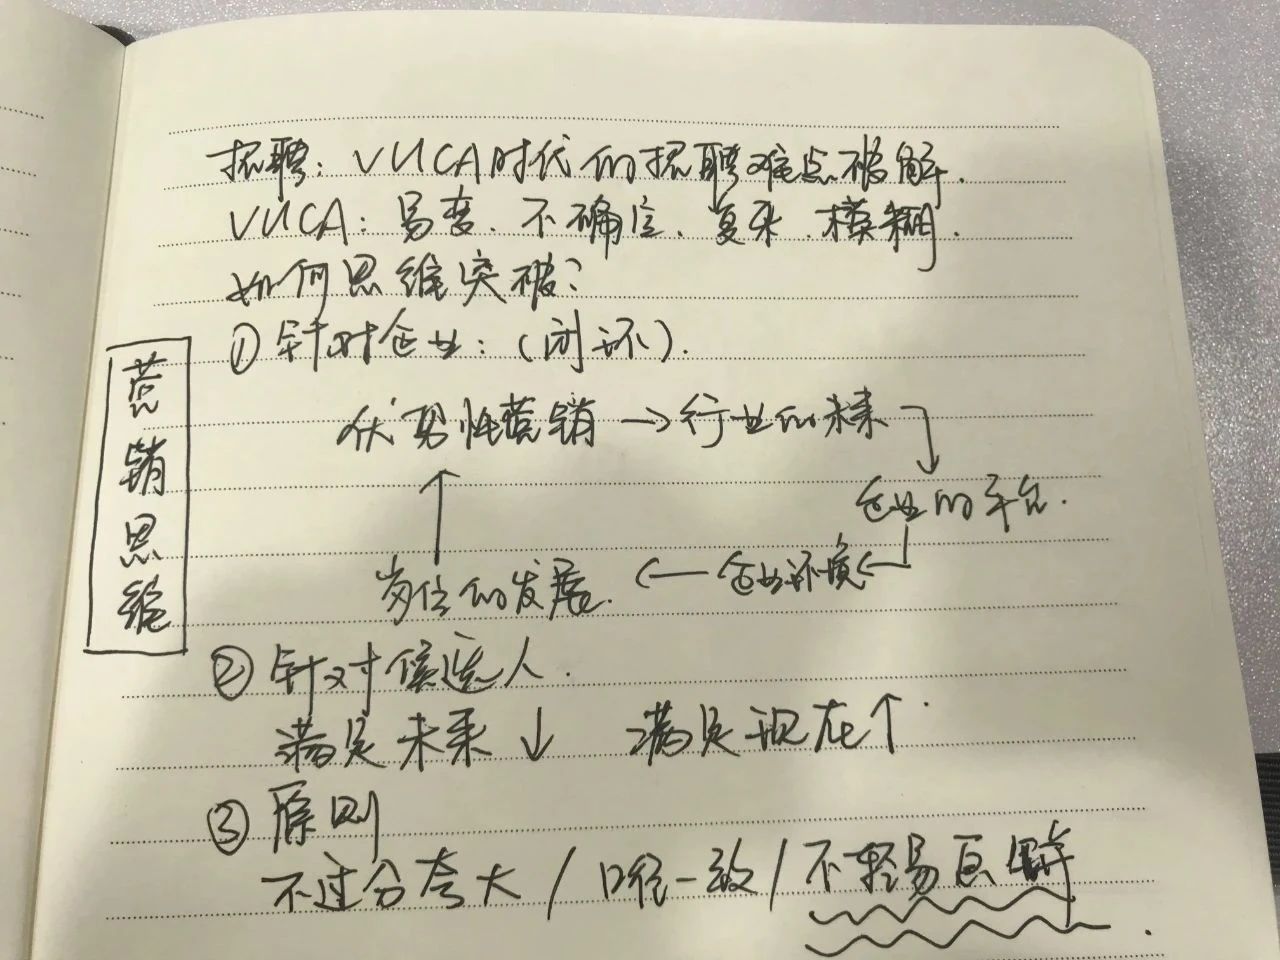 招聘：VUCA时代的招聘难点破解.
VUCA：易变、不确定、复杂、模糊.
如何思维突破？
①针对企业：（闭环）.
营销思维
优势性营销→行业的未来
企业的平台.
岗位的发展.←企业环境←
②针对候选人.
满足未来↓ 满足现在↑
③原则
不过分夸大/口径一致/不轻易画饼